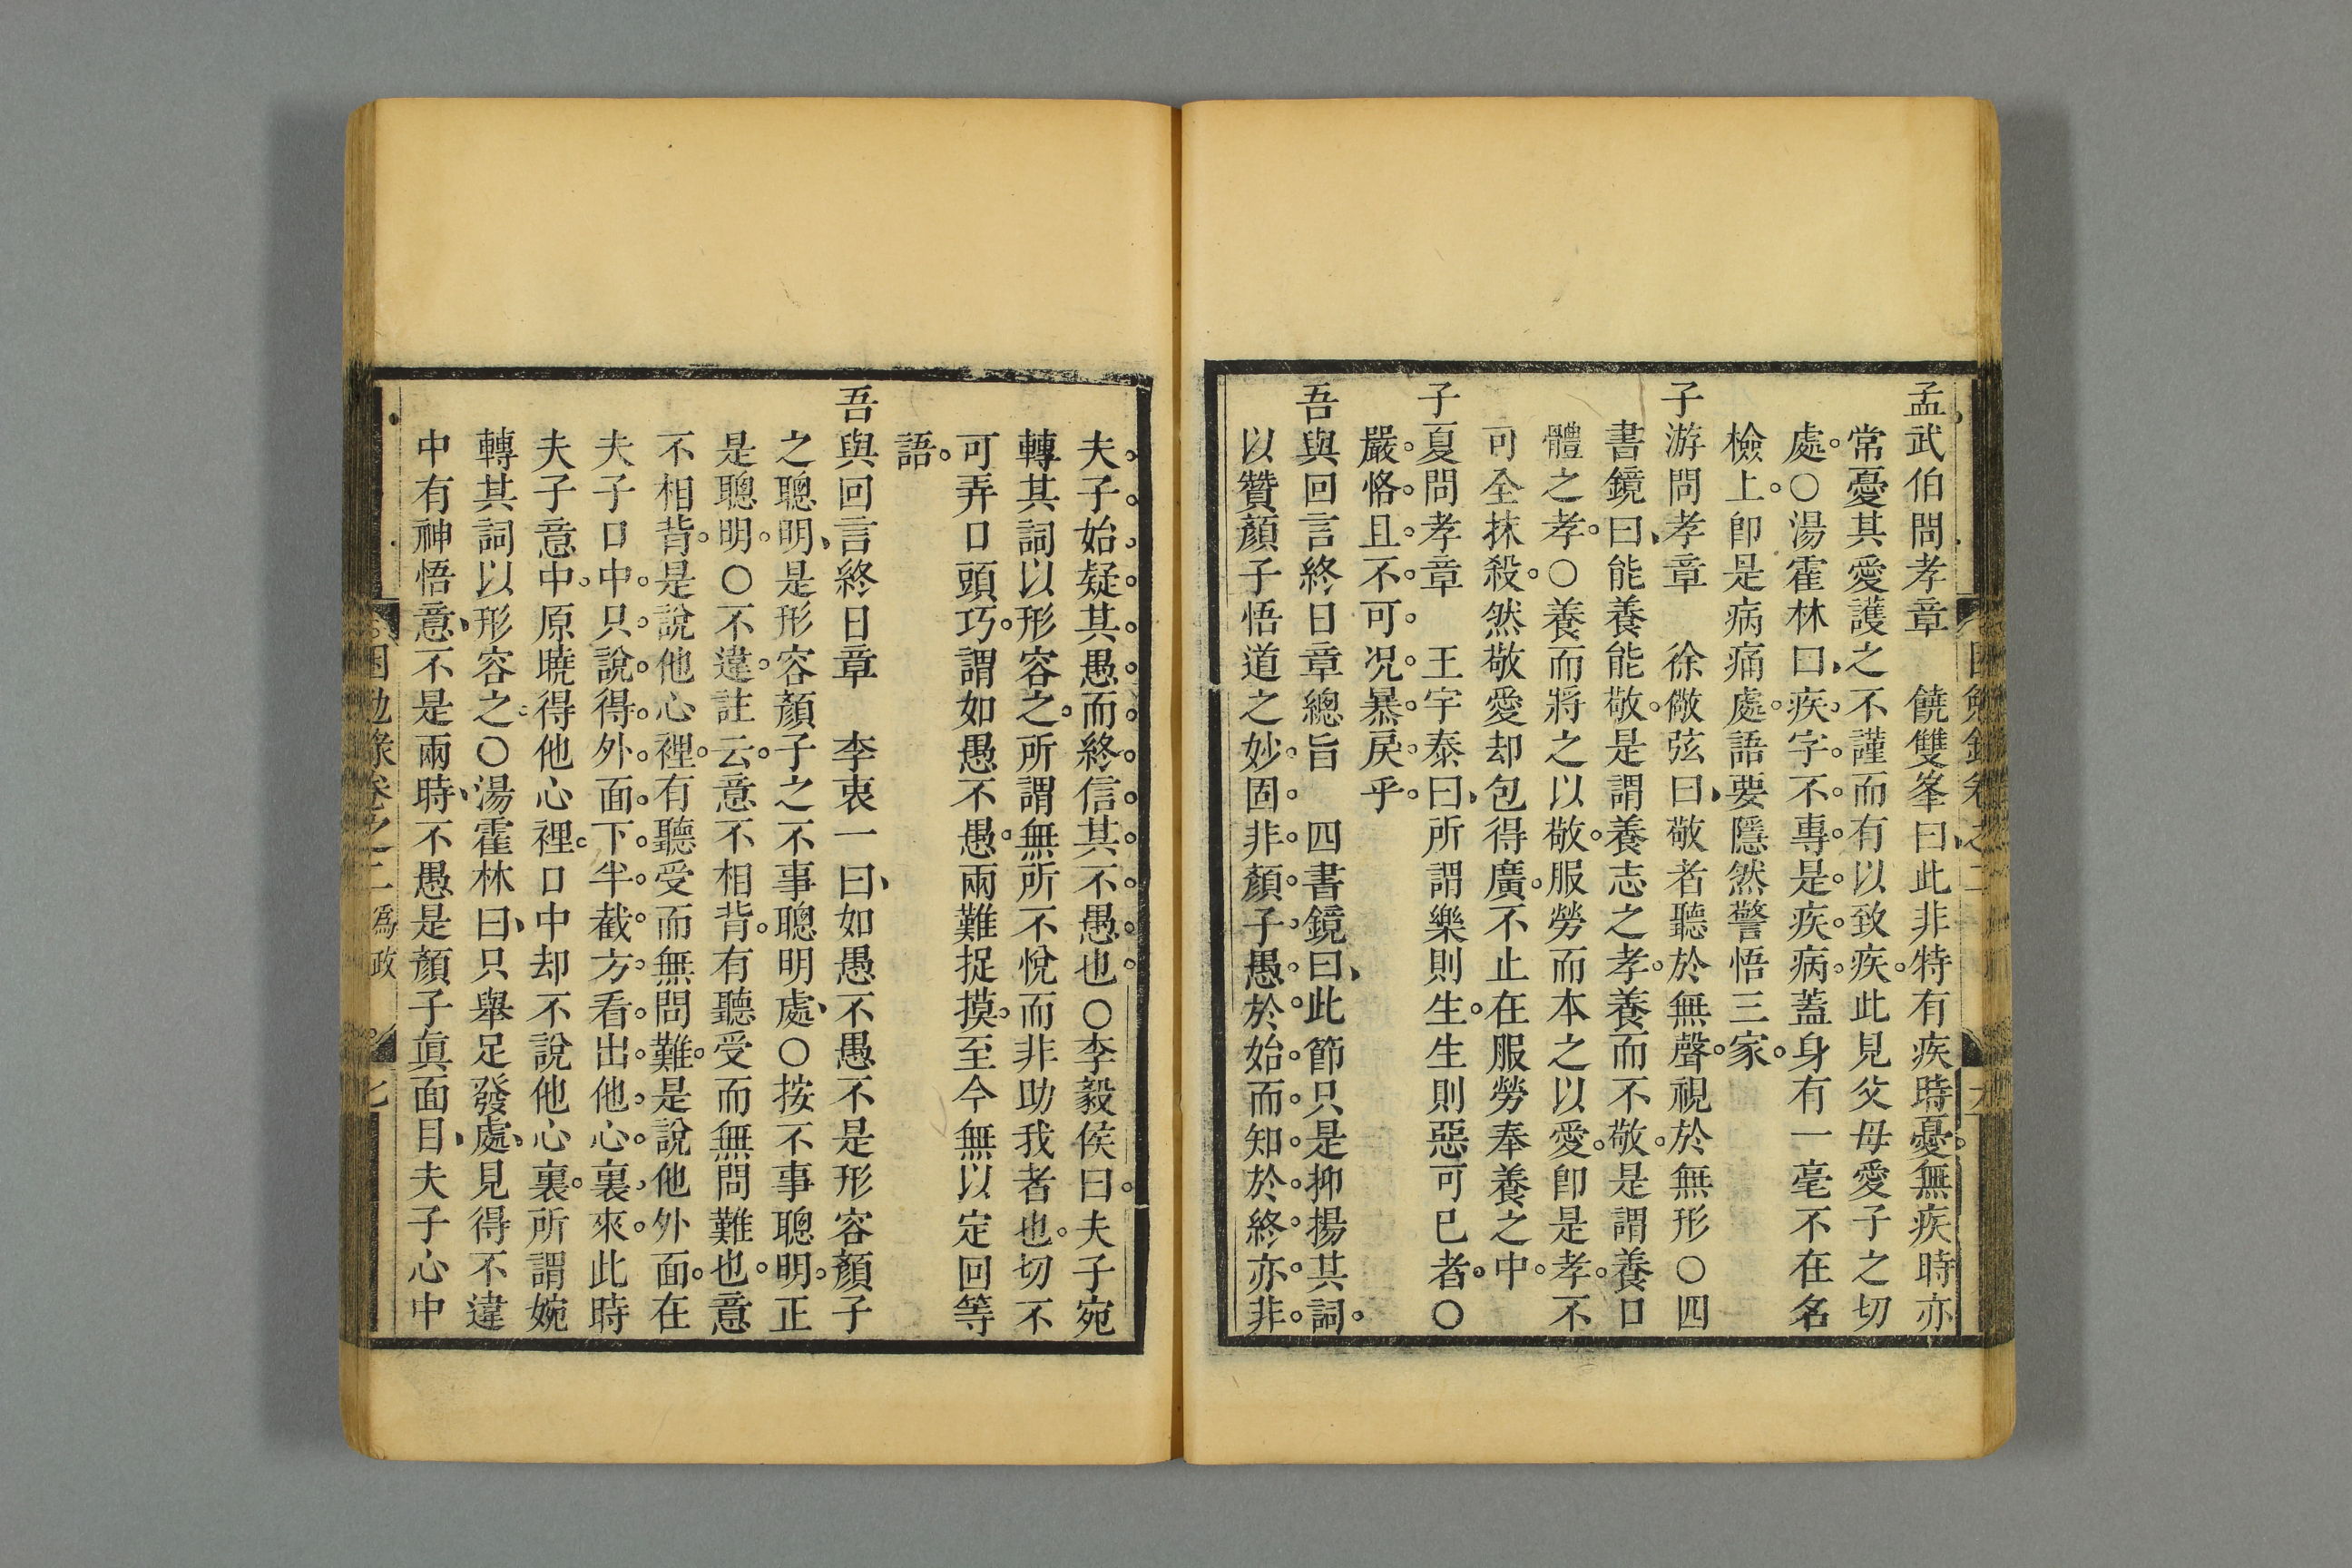 孟武伯問孝章　饒雙峯曰此非特有疾時憂無疾時亦
常憂其愛護之不謹而有以致疾此見父母愛子之切
處○湯霍林曰疾字不專是疾病蓋身有一毫不在名
檢上卽是病痛處語要隱然警悟三家
子游問孝章　徐儆弦曰敬者聽於無聲視於無形○四
書鏡曰能養能敬是謂養志之孝養而不敬是謂養口
體之孝○養而將之以敬服勞而本之以愛卽是孝不
可全抹殺然敬愛却包得廣不止在服勞奉養之中
子夏問孝章　王宇泰曰所謂樂則生生則惡可已者○
嚴恪且不可況暴戾乎
吾與回言終日章總旨　四書鏡曰此節只是抑揚其詞
以贊顏子悟道之妙固非顏子愚於始而知於終亦非
夫子始疑其愚而終信其不愚也○李毅侯曰夫子宛
轉其詞以形容之所謂無所不悅而非助我者也切不
可弄口頭巧謂如愚不愚兩難捉摸至今無以定回等
語
吾與回言終日章　李衷一曰如愚不愚不是形容顏子
之聰明是形容顏子之不事聰明處○按不事聰明正
是聰明○不違註云意不相背有聽受而無問難也意
不相背是說他心裡有聽受而無問難是說他外面在
夫子口中只說得外面下半截方看出他心裏來此時
夫子意中原曉得他心裡口中却不說他心裏所謂婉
轉其詞以形容之○湯霍林曰只舉足發處見得不違
中有神悟意不是兩時不愚是顏子眞面目夫子心中
困勉錄卷之二　爲政　七